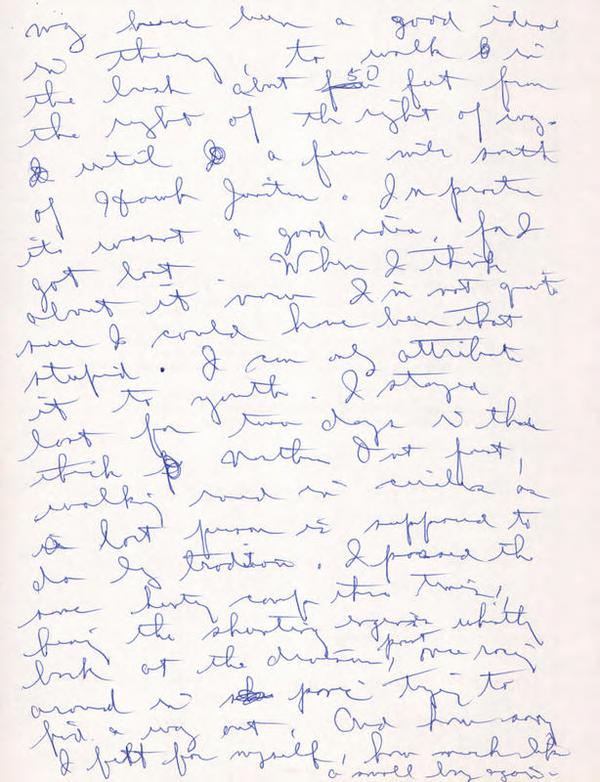 may have been a good idea
in theory, to walk in
the bush about 50 feet from
the right of the right of way.
until a few mile south
of Hawk Junction. In practice
it wasn't a good idea, for I
got lost. When I think
about it now I'm not quite
sure I could have been that
stupid. I can only attribute
it to youth. I stayed
lost for two days in that
thick northern Ont forest,
walking round in circles as
a lost person is supposed to
do by tradition. I passed the
same hunting camp three times,
hearing the shunting engines whistling
back at the division point, once going
around in panic trying to
find a way out. And how sorry
I felt for myself, how much like
a small boy again